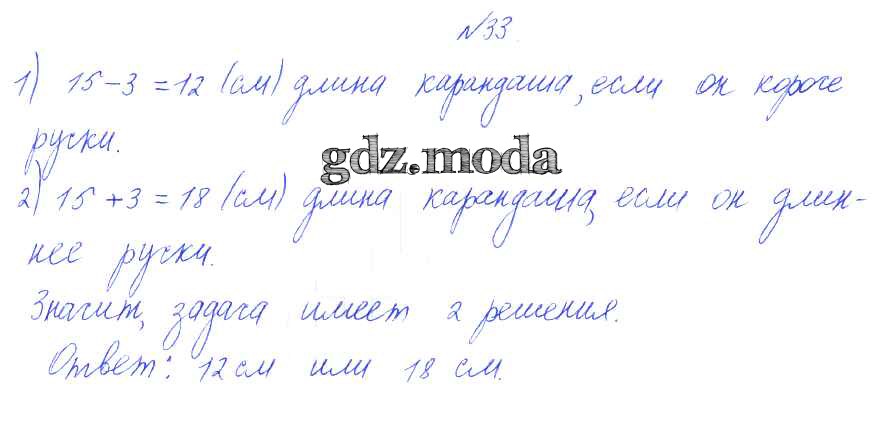 №33.
1) 15-3=12 (см) длина карандаша, если он короче
ручки.
gdz.moda
2) 15+3=18 (см) длина карандаша, если он длин-
нее ручки.
Значит, задача имеет 2 решения.
Ответ: 12 см или 18 см.